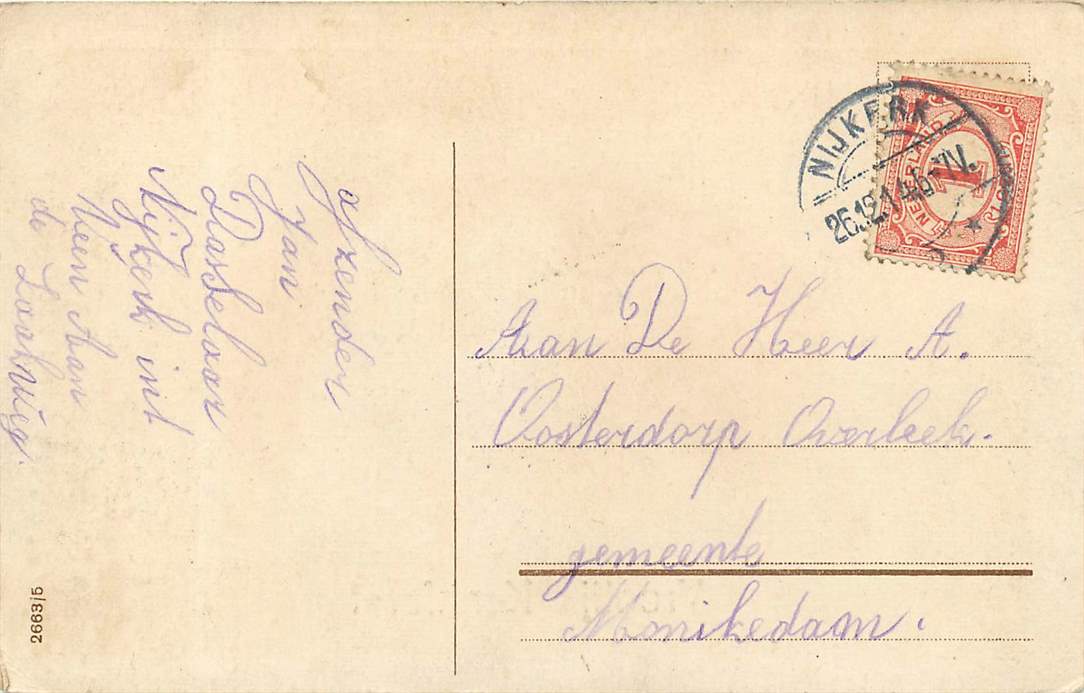 Afzender
Jan
Dasselaar
Nijkerk int
Veen Aan
de Laakweg.
NIJKERK
26.12.14
NEDERLAND
1
Aan De Heer A.
Oosterdorp Overleek.
gemeente
Monikedam.
2663/5